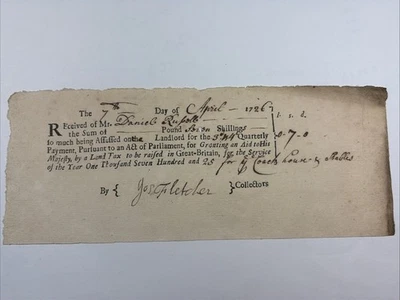 The 7th Day of April — 1726 l. s. d.
Received of Mr. Daniel Russell
the Sum of Pound Seven Shillings
so much being Assessed on the Landlord for the 3d & 4 Quarterly 0 - 7 - 0
Payment, Pursuant to an Act of Parliament, for Granting an Aid to His
Majesty, by a Land Tax to be raised in Great-Britain, for the Service
of the Year One Thousand Seven Hundred and 25 for ye Coach house & Stables
By { Jos Fletcher } Collectors